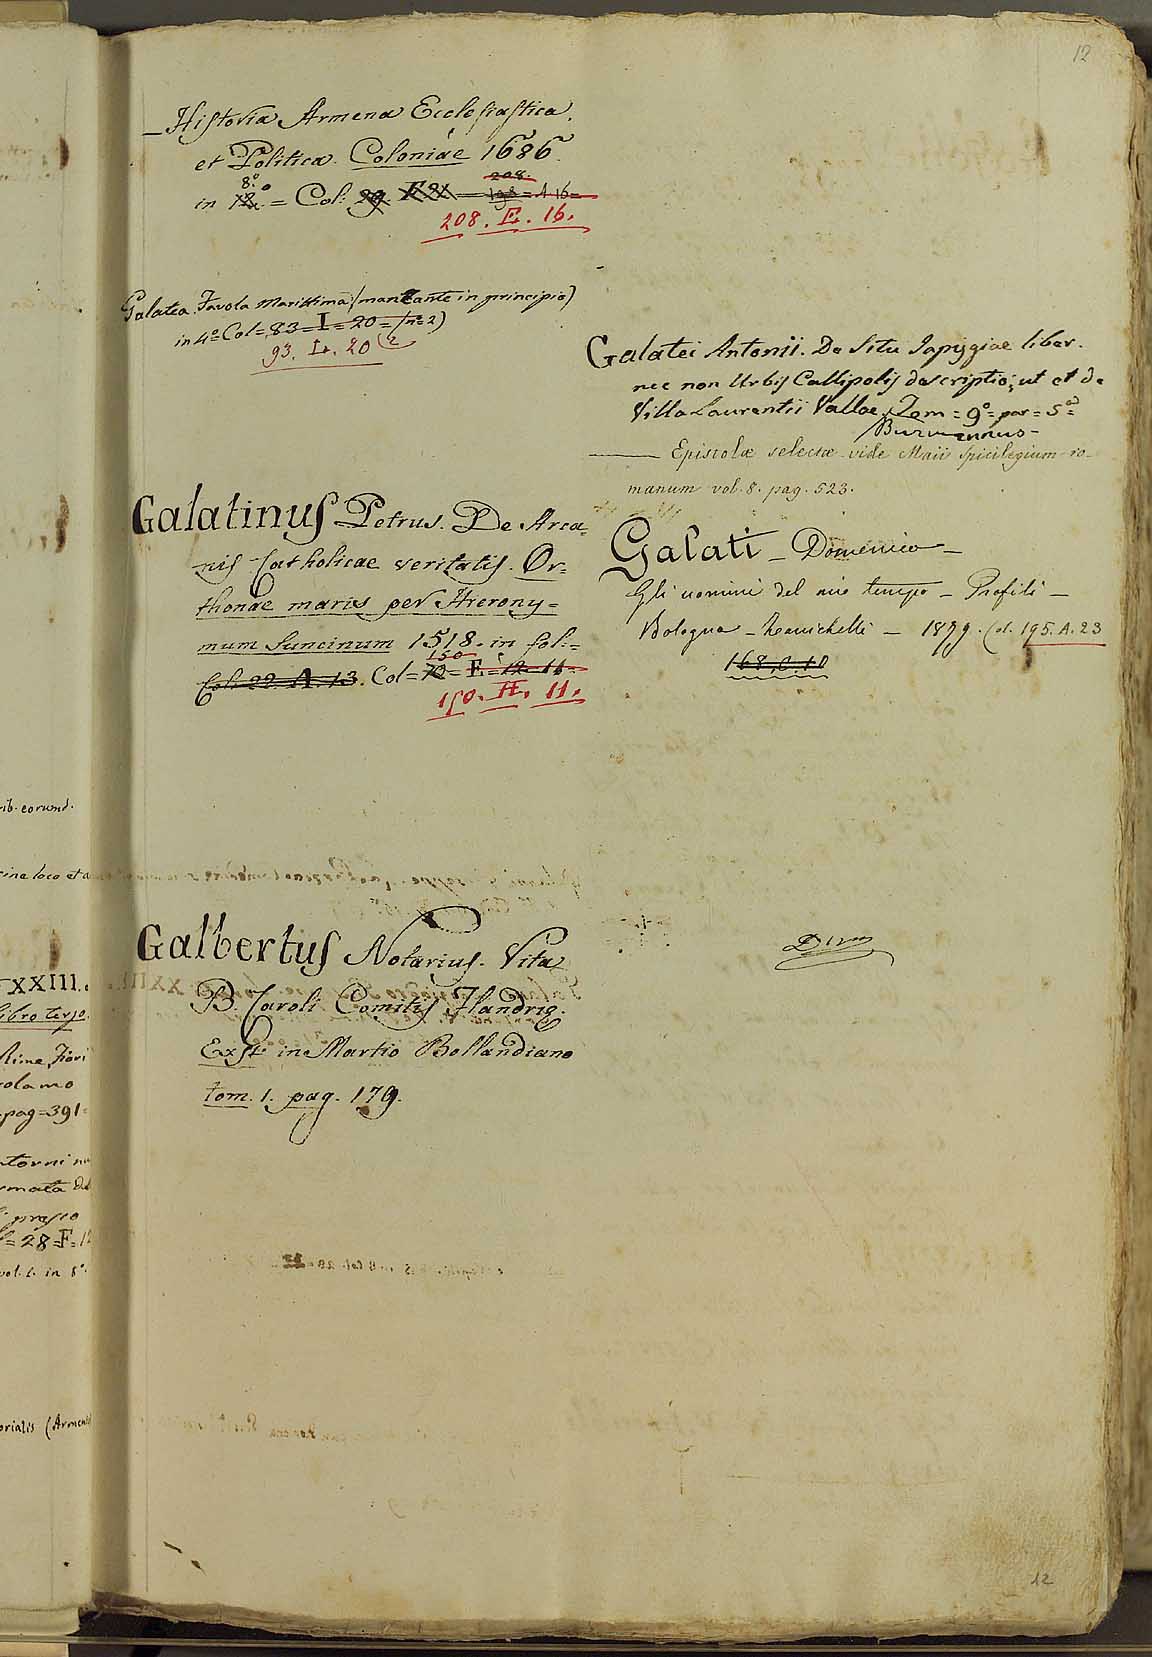 12
_ Historia Armena Ecclesiastica.
et Politica. Coloniae 1686.
8.º 208.
in 12.º = Col: 29. F 21 = 198 = A 16 =
208. E. 16.
Galatea. Favola Marittima (mancante in principio)
in 4º Col = 83 = I = 20 = (nº 2)
93. L. 20 (2
Galatinus Petrus. De Arca=
nis Catholicae veritatis. Or=
thonae maris per Hierony=
mum Suncinum 1518. in fol:=
150
Col: 22. A. 13. Col = 70 = E = 12 11.
150. H. 11.
Galbertus Notarius. Vita
B. Caroli Comitis Flandrię.
Exst. in Martio Bollandiano
tom. 1. pag. 179.
Galatei Antonii. De Situ Iapygiae liber.
nec non Urbis Callipolis descriptio; ut et de
Villa Laurentii Vallae. Tom = 9º = par = 5ª
Burmannus
——— Epistolæ selectæ vide Maii Spicilegium ro-
manum vol. 8. pag. 523.
Galati _ Domenico _
Gli uomini del mio tempo _ Profili _
Bologna _ Zanichelli _ 1879. Col. 195. A. 23
168, C. 10
ib. eorumd.
ine loco et a
XXIII.
Libro terzo.
Rime, Fiori
olamo
pag = 391 =
ntorni
rmata
presso
= 28 = F = 12
vol. 1. in 8º.
orialis (Armen
12